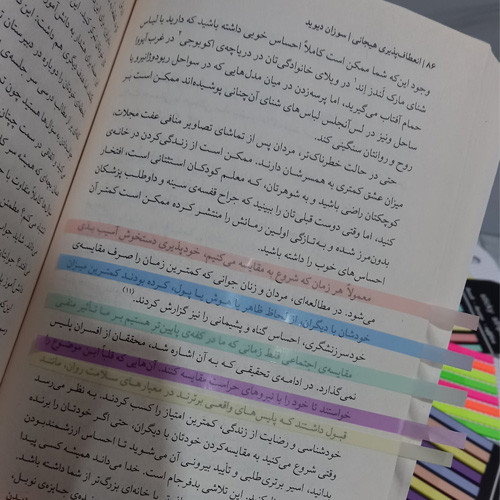 ۸۶ | انعطاف‌پذیری هیجانی | سوزان دیوید
وجود این‌که شما ممکن است کاملاً احساس خوبی داشته باشید که دارید با لباس
شنای مارک لندز اند در ویلای خانوادگی‌تان در دریاچه‌ی اکوبوجی در غرب آیووا
حمام آفتاب می‌گیرید، اما پرسه‌زدن در میان مدل‌هایی که در سواحل ریودوژانیرو یا
ساحل ونیز در لس‌آنجلس لباس‌های شنای آن‌چنانی پوشیده‌اند ممکن است بر
روح و روانتان سنگینی کند.
حتی در حالت خطرناک‌تر، مردان پس از تماشای تصاویر منافی عفت مجلات،
میزان عشق کمتری به همسرشان دارند. ممکن است از زندگی‌کردن در خانه‌ی
کوچکتان راضی باشید و به شوهرتان، که معلم کودکان استثنایی است، افتخار
کنید، اما وقتی دوست قبلی‌تان را ببینید که جراح قفسه‌ی سینه و داوطلب پزشکان
بدون‌مرز شده و به‌تازگی اولین رمانش را منتشر کرده ممکن است کمتر آن
احساس‌های خوب را داشته باشید.
معمولاً هر زمان که شروع به مقایسه می‌کنیم، خودپذیری دستخوش آسیب بدی
می‌شود. در مطالعه‌ای، مردان و زنان جوانی که کمترین زمان را صرف مقایسه‌ی
خودشان با دیگران، از لحاظ ظاهر یا هوش یا پول، کرده بودند کمترین میزان
خودسرزنشگری، احساس گناه و پشیمانی را نیز گزارش کردند.(۱۱)
مقایسه‌ی اجتماعی فقط زمانی که ما در کفه‌ی پایین‌تر هستیم بر ما تأثیر منفی
نمی‌گذارد. در ادامه‌ی تحقیقی که به آن اشاره شد، محققان از افسران پلیس
خواستند تا خود را با نیروهای حراست مقایسه کنند. آن‌هایی که قالباً این موضوع را
قبول داشتند که پلیس‌های واقعی برترند در معیارهای سلامت روان، مانند
خودشناسی و رضایت از زندگی، کمترین امتیاز را کسب کردند. به نظر می‌رسد
وقتی شروع می‌کنید به مقایسه‌کردن خودتان با دیگران، حتی اگر خودتان را برنده
بدانید، اسیر برتری‌طلبی و تأیید بیرونی آن می‌شوید تا احساس ارزشمندبودن
کنید. این تلاشی بدفرجام است. خدا می‌داند همیشه کسی پیدا
خانه‌ای بزرگ‌تر از شما داشته باشد.
جایزه‌ی نوبل